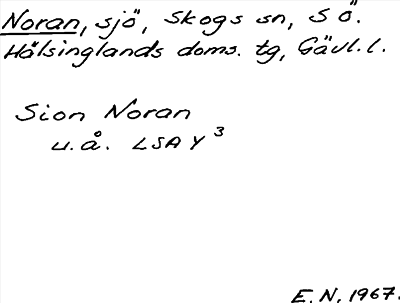 Noran, sjö, Skogs sn, S ö.
Hälsinglands doms. tg, Gävl.l.
Sion Noran
u.å. LSA Y³
E.N. 1967.